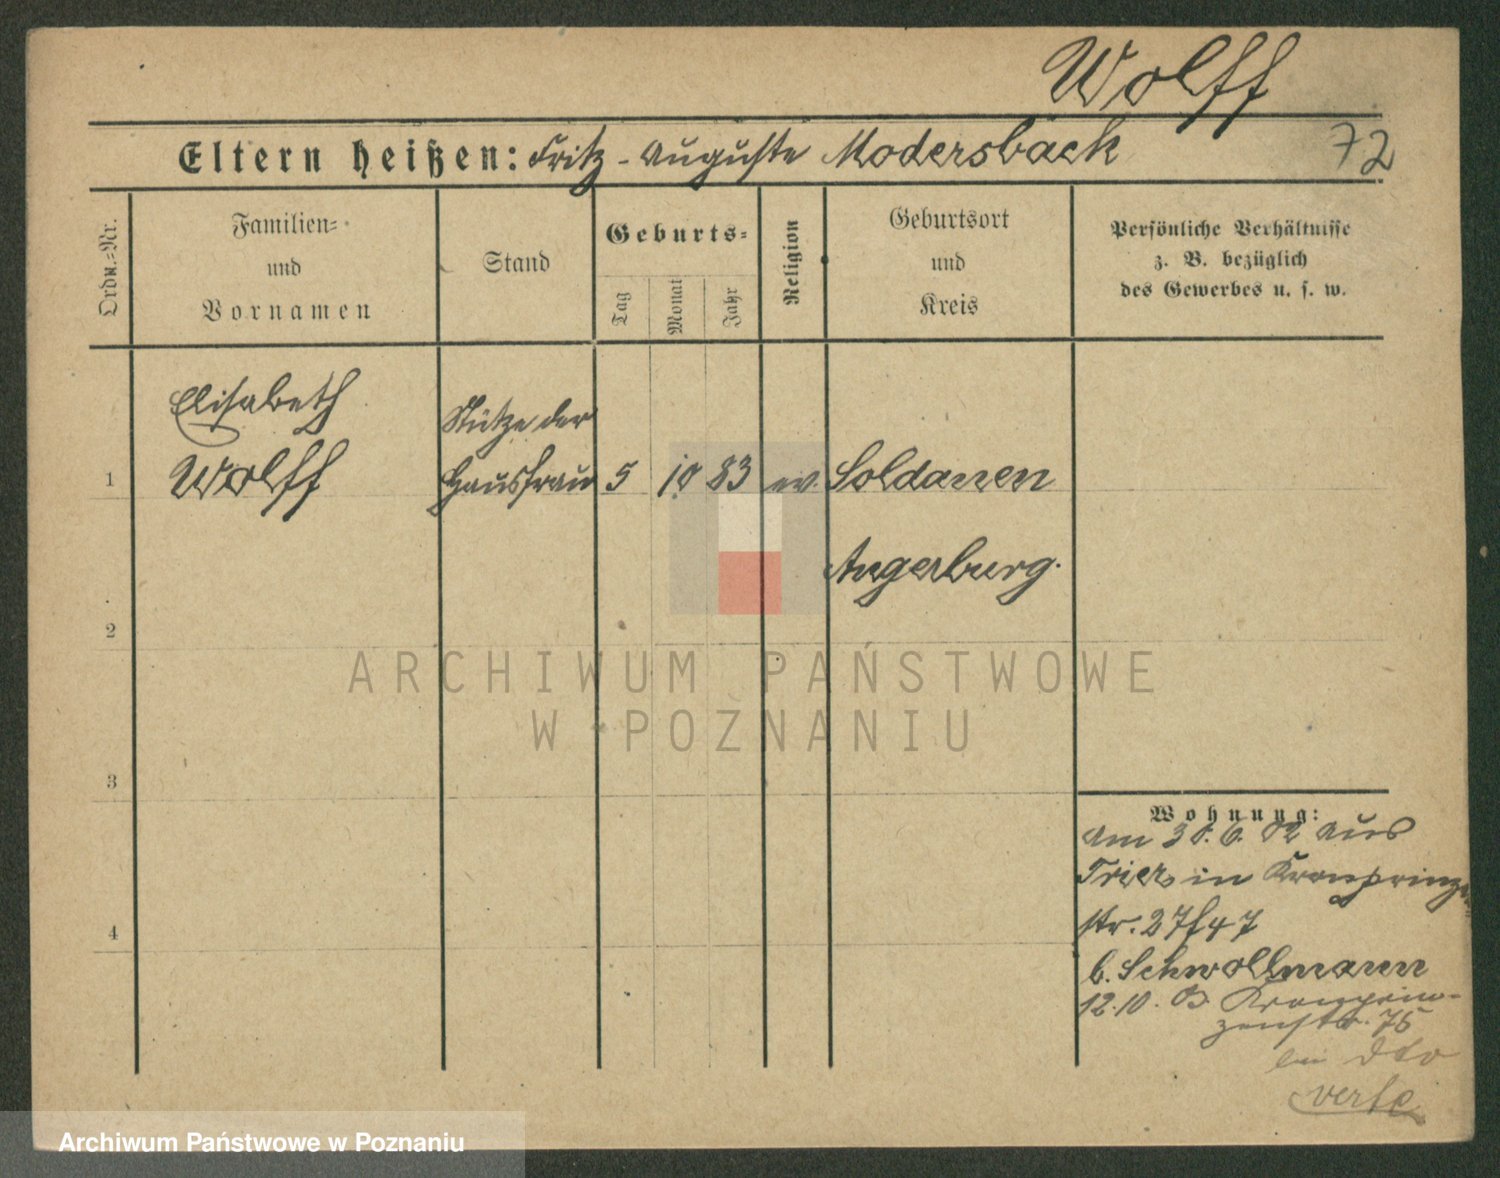 Wolff
Eltern heißen: Fritz - Auguste Modersback
72
Ordn.-Nr.
Familien-
und
Vornamen
Stand
Geburts-
Tag
Monat
Jahr
Religion
Geburtsort
und
Kreis
Persönliche Verhältnisse
z. B. bezüglich
des Gewerbes u. s. w.
Elisabeth
Wolff
Stütze der
Hausfrau
1
5
10
83
ev.
Soldanen
Angerburg.
2
3
4
Wohnung:
am 30.6.02 aus
Trier in Kronprinzen
str. 27 47
b. Schwollmann
12.10. 03 Kronprin-
zenstr. 75
bei dto
verte
ARCHIWUM PAŃSTWOWE
W POZNANIU
Archiwum Państwowe w Poznaniu